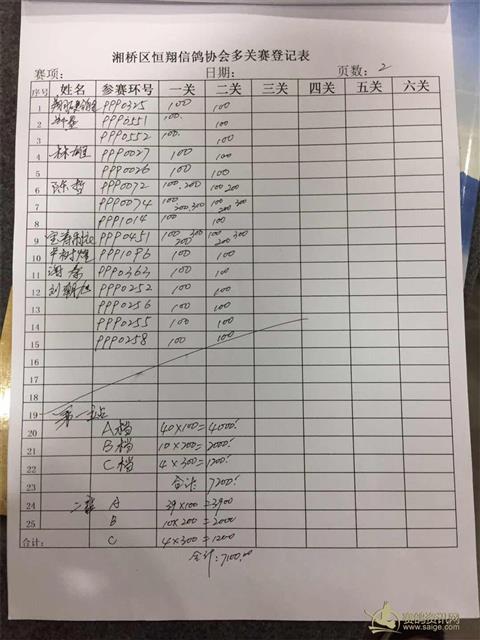 湘桥区恒翔信鸽协会多关赛登记表
赛项: 日期: 页数: 2
序号 姓名 参赛环号 一关 二关 三关 四关 五关 六关
1 PPP0325 100 100
2 PPP0551 100 100
3 PPP0552 100 100
4 林雄 PPP0027 100 100
5 PPP0026 100 100
6 陈哲 PPP0072 100,200 100 200
7 PPP0074 100 200,300 100 200 300
8 PPP1014 100 100
9 PPP0451 100 300 200 100 300 200
10 PPP1096 100 100
11 谢 PPP0363 100 100
12 刘 PPP0252 100 100
13 PPP0256 100 100
14 PPP0255 100 100
15 PPP0258 100 100
16
17
18
19 第一站
20 A档 40×100=4000
21 B档 10×200=2000
22 C档 4×300=1200
23 合计 7200
24 A 39×100=3900
25 B 10×200=2000
合计: C 4×300=1200
合计:7100.00
赛鸽资讯网
www.saige.com